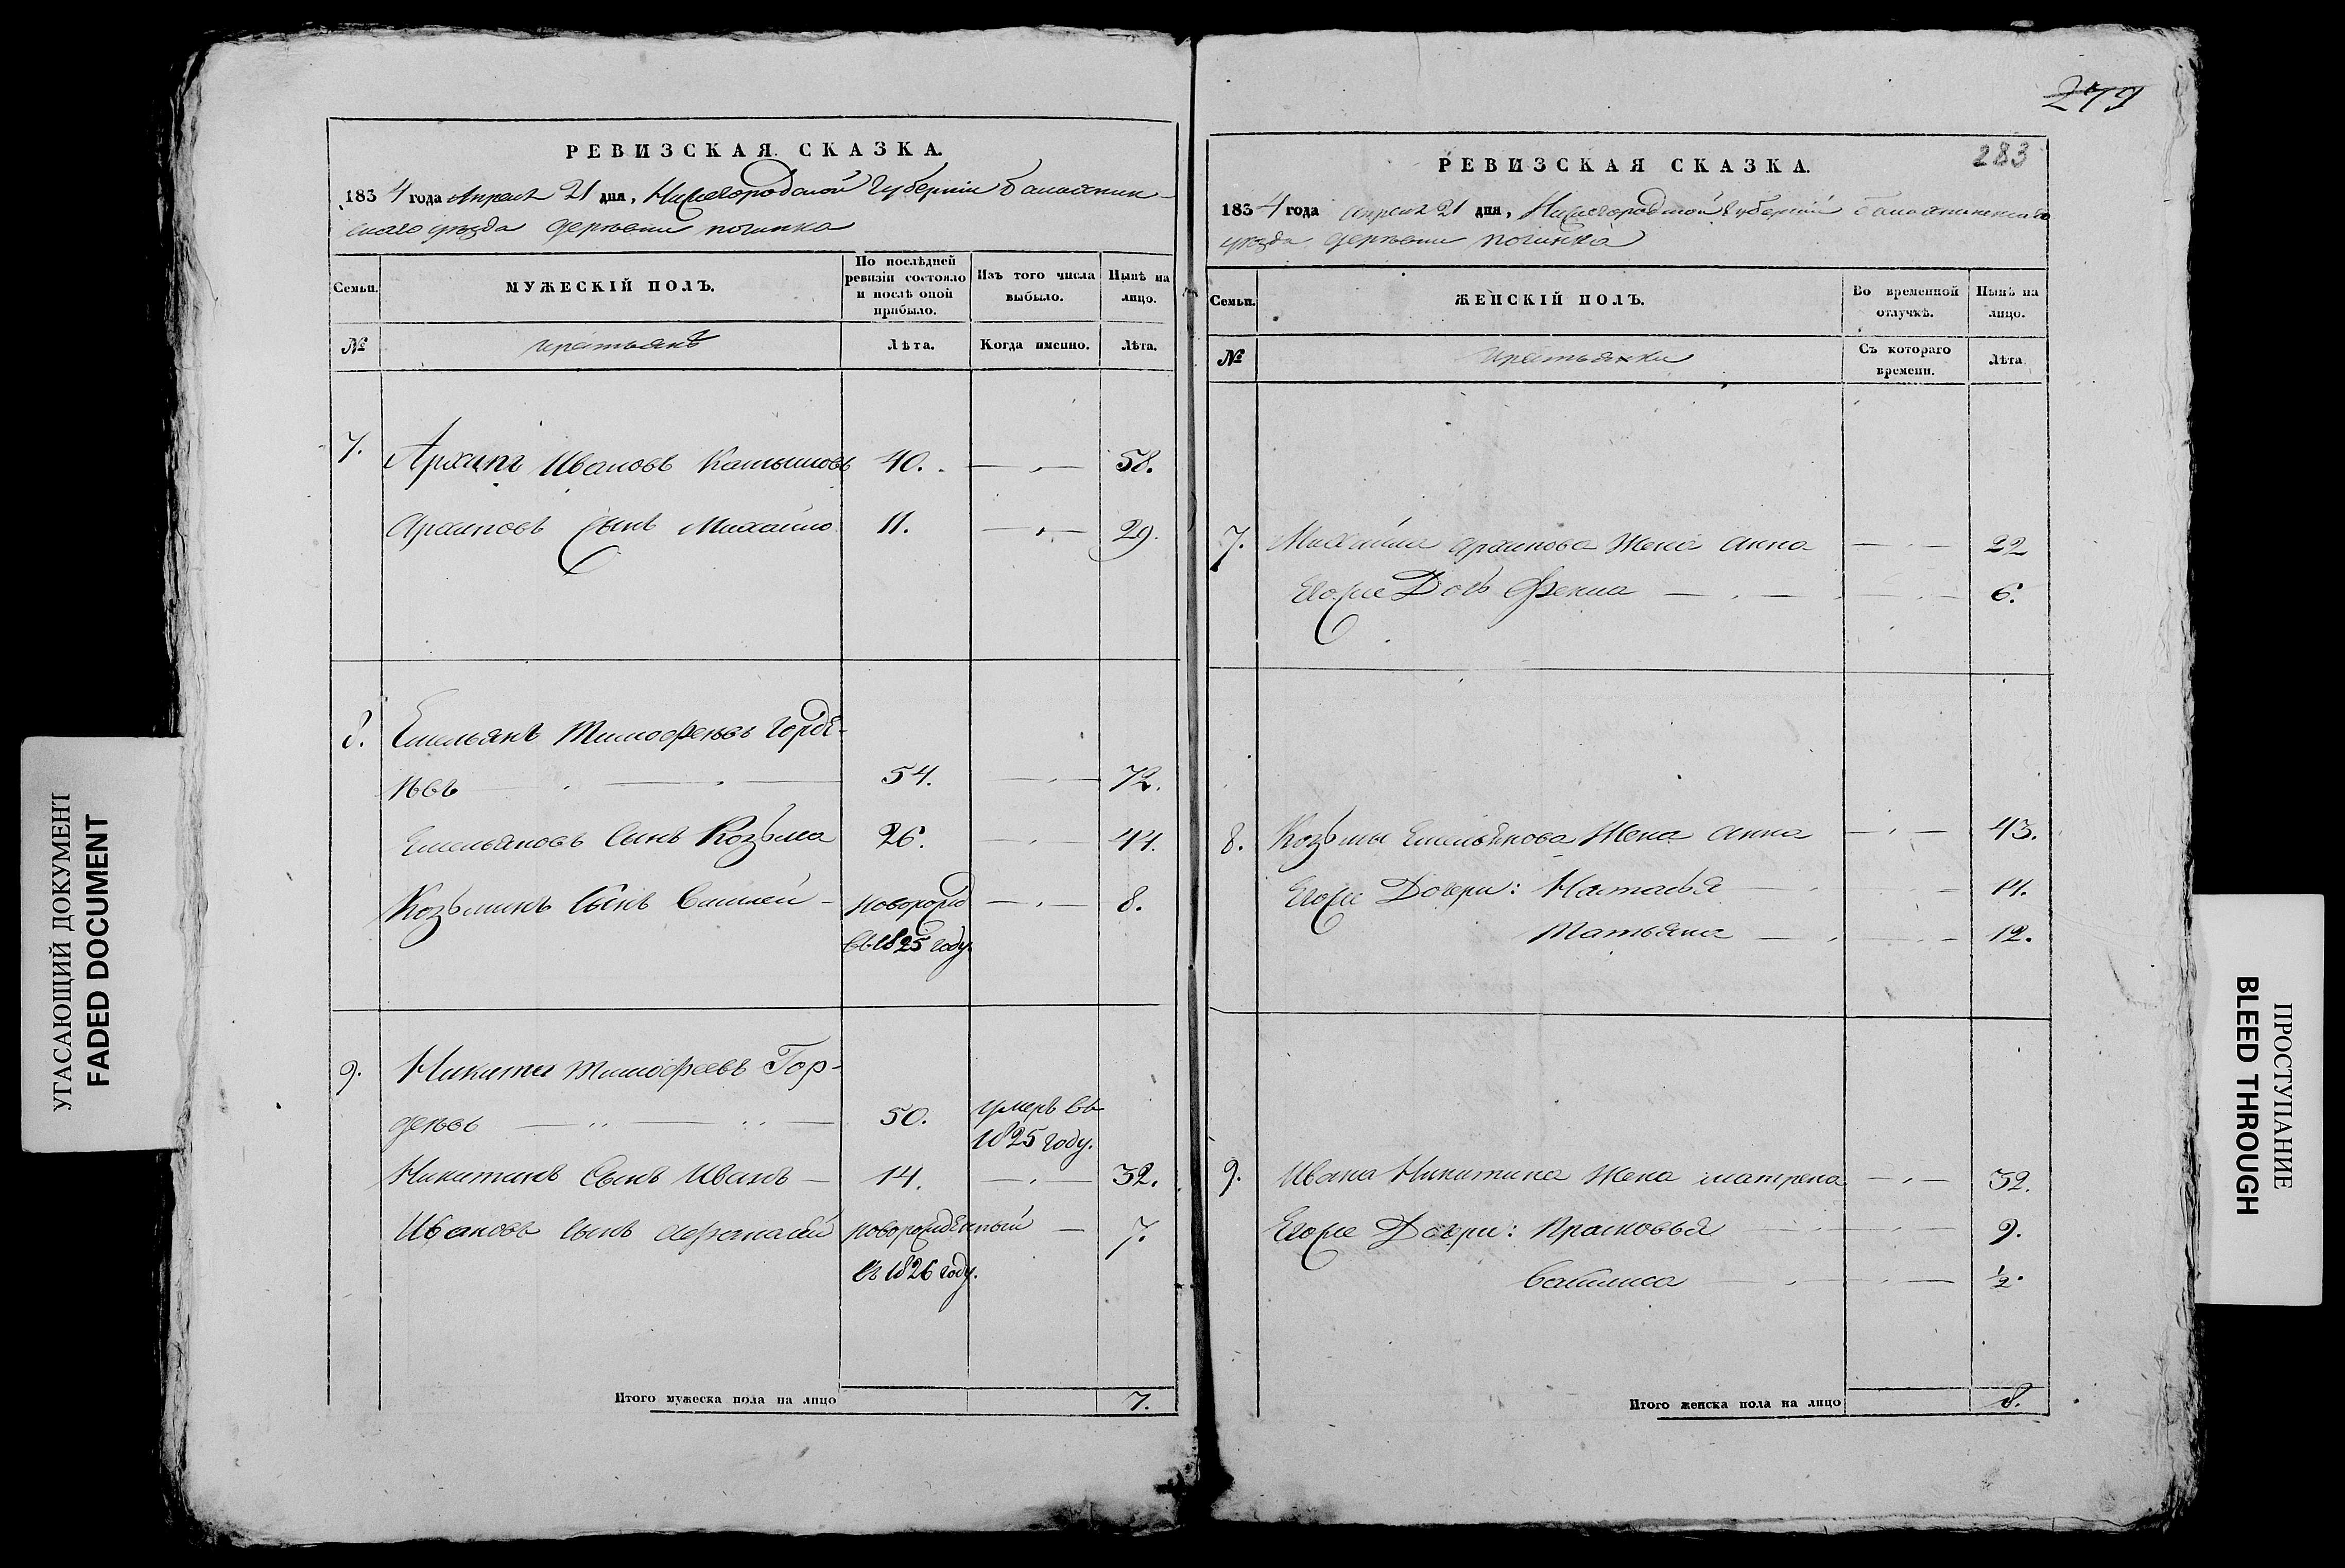 279
283
РЕВИЗСКАЯ СКАЗКА.
1834 года Апреля 21 дня, Нижегородской Губернии балахнин-
скаго уезда деревни починка
Семьи.
МУЖЕСКІЙ ПОЛЪ.
По послѣдней
ревизіи состояло
и послѣ оной
прибыло.
Изъ того числа
выбыло.
Нынѣ на
лицо.
№
крестьянъ
Лѣта.
Когда именно.
Лѣта.
7. Архипъ Ивановъ 40. 58.
Архиповъ Сынъ Михайло 11. 29.
8. Емельянъ Тимофеѣвъ Горде-
ѣвъ 54. 72.
Емельяновъ Сынъ Козьма 26. 44.
Козьминъ Сынъ новорожд 8.
въ 1825 году.
9. Никита Тимофеевъ Гор-
деѣвъ 50. умеръ въ
1825 году.
Никитинъ Сынъ Иванъ 14. 32.
Ивановъ Сынъ Афонасей новорожденный 7.
въ 1826 году.
Итого мужеска пола на лицо 7.
РЕВИЗСКАЯ СКАЗКА.
1834 года апреля 21 дня, Нижегородской Губернии балахнинскаго
уезда деревни починка
Семьи.
ЖЕНСКІЙ ПОЛЪ.
Во временной
отлучкѣ.
Нынѣ на
лицо.
№
крестьянки
Съ котораго
времени.
Лѣта
7. Михайла архипова Жена анна 22
Егоже Дочь Фекла 6.
8. Козьмы Емельянова Жена анна 43.
Егоже Дочери: Наталья 14.
Татьяна 12.
9. Ивана Никитина Жена матрена 32.
Егоже Дочери: Прасковья 9.
Василиса 1/2.
Итого женска пола на лицо 8.
УГАСАЮЩИЙ ДОКУМЕНТ
FADED DOCUMENT
ПРОСТУПАНИЕ
BLEED THROUGH